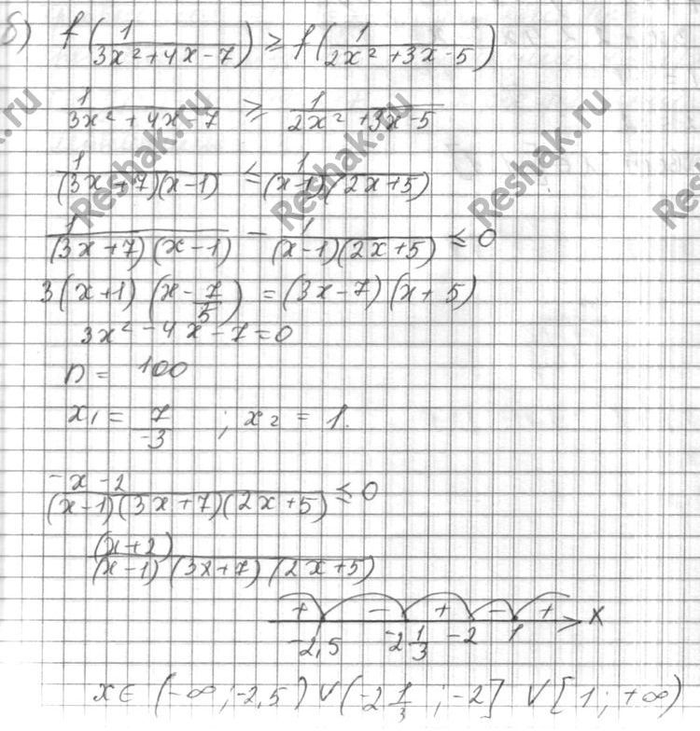 б) f(1/(3x²+4x-7)) ≥ f(1/(2x²+3x-5))
1/(3x²+4x-7) ≥ 1/(2x²+3x-5)
1/((3x+7)(x-1)) ≤ 1/((x-1)(2x+5))
1/((3x+7)(x-1)) - 1/((x-1)(2x+5)) ≤ 0
3(x+1)(x-7/5) = (3x-7)(x+5)
3x²-4x-7=0
D = 100
x₁ = 7/-3 ; x₂ = 1.
(-x-2)/((x-1)(3x+7)(2x+5)) ≤ 0
(x+2)/((x-1)(3x+7)(2x+5))
+ - + - + x
-2,5 -2 1/3 -2 1
x∈ (-∞;-2,5) ∨ (-2 1/3 ; -2] ∨ [1; +∞)
Reshak.ru
Reshak.ru
Reshak.ru